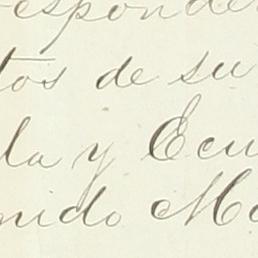 esponde
tos de su
la y Ecu
nido Mo